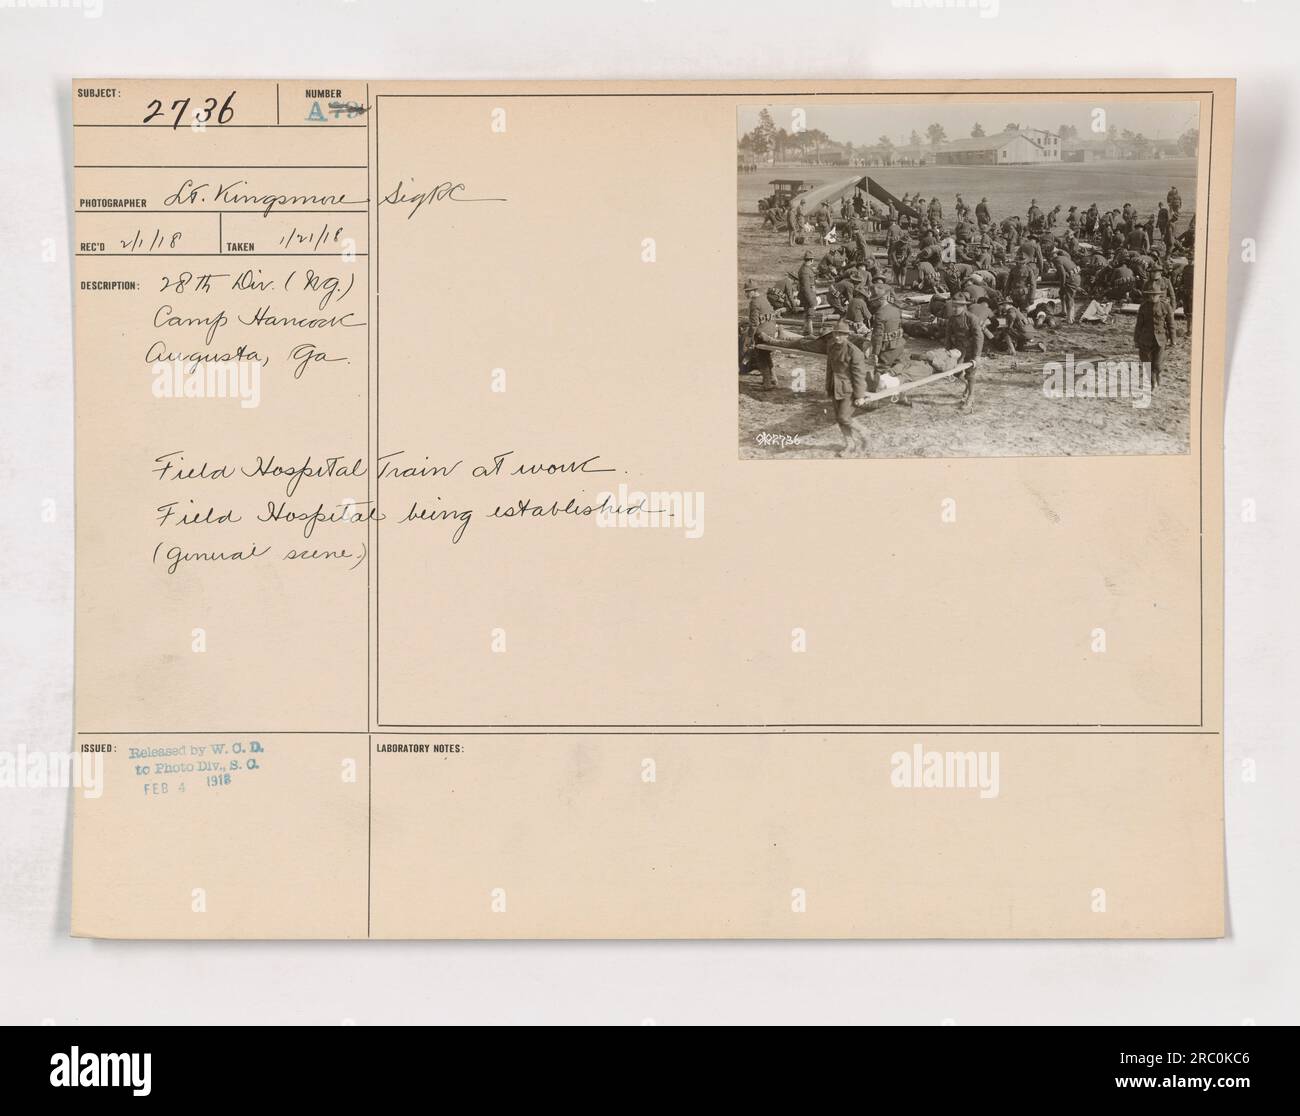 SUBJECT: 2736
NUMBER
A 79
PHOTOGRAPHER Lt. Kingsmore SigRC
REC'D 2/1/18 TAKEN 1/21/18
DESCRIPTION: 28th Div. (Ng.)
Camp Hancock
Augusta, Ga.
Field Hospital Train at work.
Field Hospital being established.
(general scene.)
2736
ISSUED: Released by W. C. D.
to Photo Div., S. C.
FEB 4 1918
LABORATORY NOTES:
alamy
Image ID: 2RC0KC6
www.alamy.com